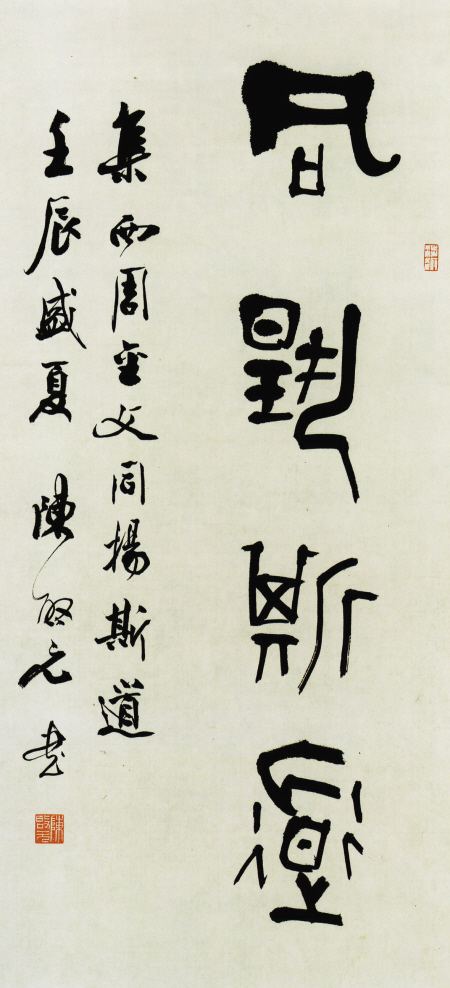 同揚斯道
集西周金文同揚斯道
壬辰盛夏 陳啟元書
陳啟元